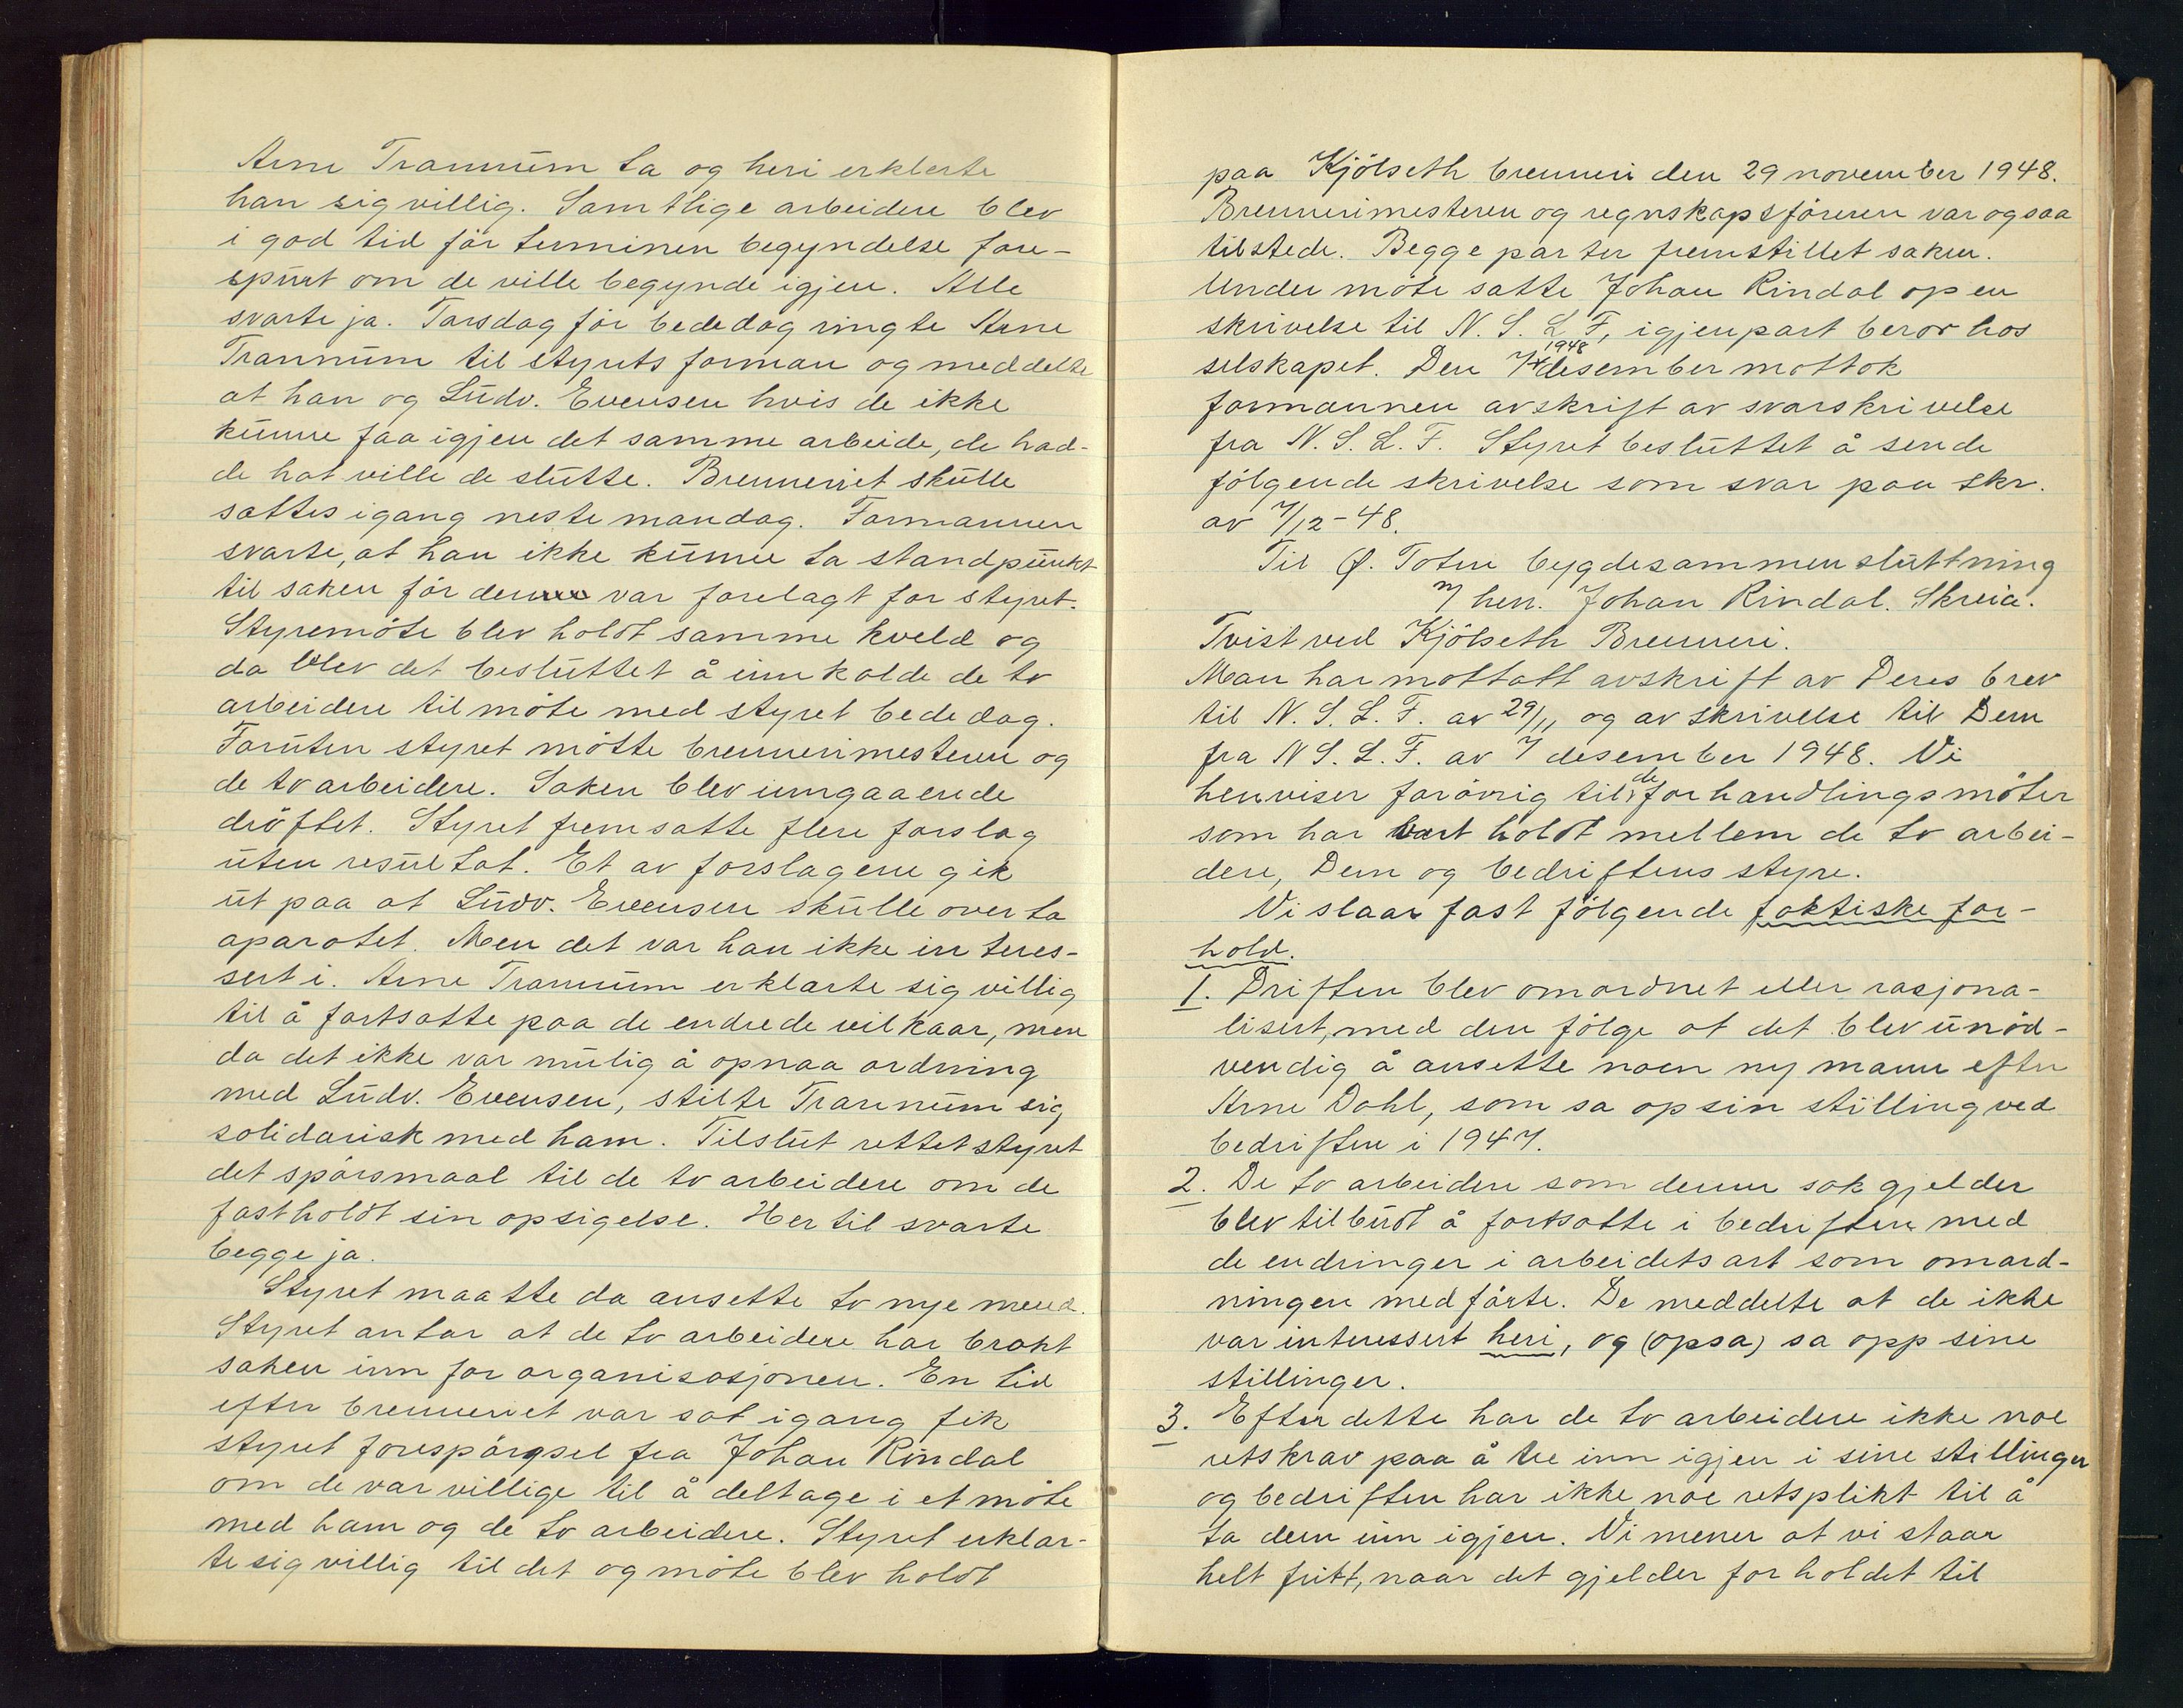 Arne Trannum ta og heri erklerte
han sig villig. Samtlige arbeidere blev
i god tid för terminen begyndelse fore-
spurt om de ville begynde igjen. Alle
svarte ja. Torsdag för bededag ringte Arne
Trannum til styrets forman og meddelte
at han og Ludv. Evensen hvis de ikke
kunne faa igjen det samme arbeide, de had-
de hat ville de slutte. Brenneriet skulle
sattes igang neste mandag. Formannen
svarte, at han ikke kunne ta standpunkt
til saken för den var forelagt for styret.
Styremöte blev holdt samme kveld og
da blev det besluttet å innkalde de to
arbeidere til möte med styret bededag.
Foruten styret mötte brennerimesteren og
de to arbeidere. Saken blev inngaaende
dröftet. Styret fremsatte flere forslag
uten resultat. Et av forslagene gik
ut paa at Ludv. Evensen skulle overta
aparatet. Men det var han ikke interes-
sert i. Arne Trannum erklarte sig villig
til å fortsatte paa de endrede vilkaar, men
da det ikke var mulig å opnaa ordning
med Ludv. Evensen, stilte Trannum sig
solidarisk med ham. Tilslut rettet styret
det spörsmaal til de to arbeidere om de
fastholdt sin opsigelse. Her til svarte
begge ja.
Styret maatte da ansette to nye mend.
Styret antar at de to arbeidere har brakt
saken inn for organisasjonen. En tid
efter brenneriet var sat igang fik
styret forespörgsel fra Johan Rindal
om de var villige til å deltage i et möte
med ham og de to arbeidere. Styret erklar-
te sig villig til det og möte blev holdt
paa Kjölseth brenneri den 29 november 1948.
Brennerimesteren og regnskapsföreren var ogsaa
tilstede. Begge parter fremstillet saken.
Under möte satte Johan Rindal op en
skrivelse til N. S. L. F, igjenpart beror hos
selskapet. Den 7 desember 1948 mottok
formannen avskrift av svarskrivelse
fra N. S. L. F. Styret besluttet å sende
fölgende skrivelse som svar paa skr.
av 7/12-48.
Til Ø. Toten bygdesammenslutning
v/ herr. Johan Rindal. Skreia.
Tvist ved Kjölseth Brenneri.
Man har mottatt avskrift av Deres brev
til N. S. L. F. av 29/11 og av skrivelse til Dem
fra N S. L. F. av 7 desember 1948. Vi
henviser forövrig til de forhandlingsmöter
som har vært holdt mellem de to arbei-
dere, Dem og bedriftens styre.
Vi slaar fast fölgende faktiske for-
hold.
1. Driften blev omordnet eller rasjona-
lisert, med den fölge at det blev unöd-
vendig å ansette noen ny mann efter
Arne Dahl, som sa op sin stilling ved
bedriften i 1947.
2. De to arbeidere som denne sak gjelder
blev tilbudt å fortsatte i bedriften med
de endringer i arbeidets art som omord-
ningen medförte. De meddelte at de ikke
var interessert heri, og (opsa) sa opp sine
stillinger.
3. Efter dette har de to arbeidere ikke noe
retskrav paa å tre inn igjen i sine stillinger
og bedriften har ikke noe retsplikt til å
ta dem inn igjen. Vi mener at vi staar
helt fritt, naar det gjelder forholdet til